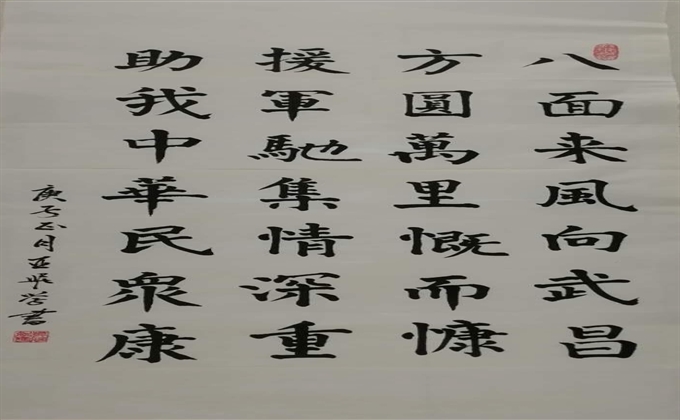 八面来風向武昌
方圓萬里慨而慷
援軍馳集情深重
助我中華民衆康
庚子正月亚
書